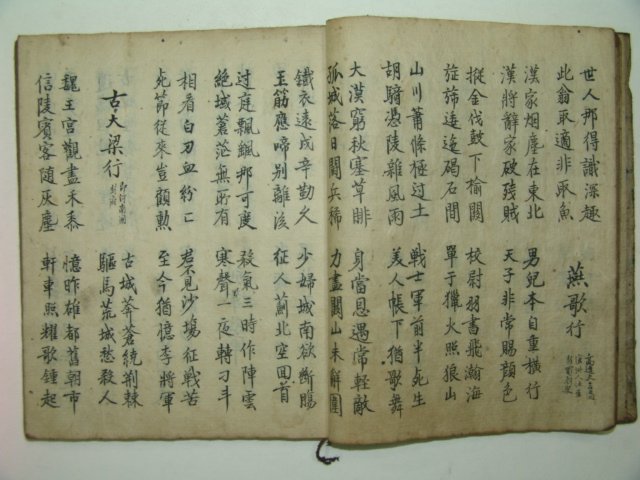 世人那得識深趣
此翁取適非取魚
燕歌行
漢家烟塵在東北
漢將辭家破殘賊
男兒本自重橫行
天子非常賜顔色
摐金伐鼓下榆關
旌斾逶迤碣石間
校尉羽書飛瀚海
單于獵火照狼山
山川蕭條極边土
胡騎憑陵雜風雨
戰士軍前半死生
美人帳下猶歌舞
大漠窮秋塞草腓
孤城落日鬪兵稀
身當恩遇常輕敵
力盡關山未解圍
鐵衣遠戍辛勤久
玉筋應啼別離後
少婦城南欲斷腸
征人薊北空回首
过庭飄颻那可度
絶域蒼茫無所有
殺氣三時作陣雲
寒聲一夜轉刁斗
相看白刃血紛匕
死節從來豈顧勲
君不見沙場征戰苦
至今猶憶李將軍
古大梁行
古城莽蒼繞荆棘
驅馬荒城愁殺人
魏王宮觀盡禾黍
信陵賓客隨灰塵
憶昨雄都舊朝市
軒車照耀歌鍾起